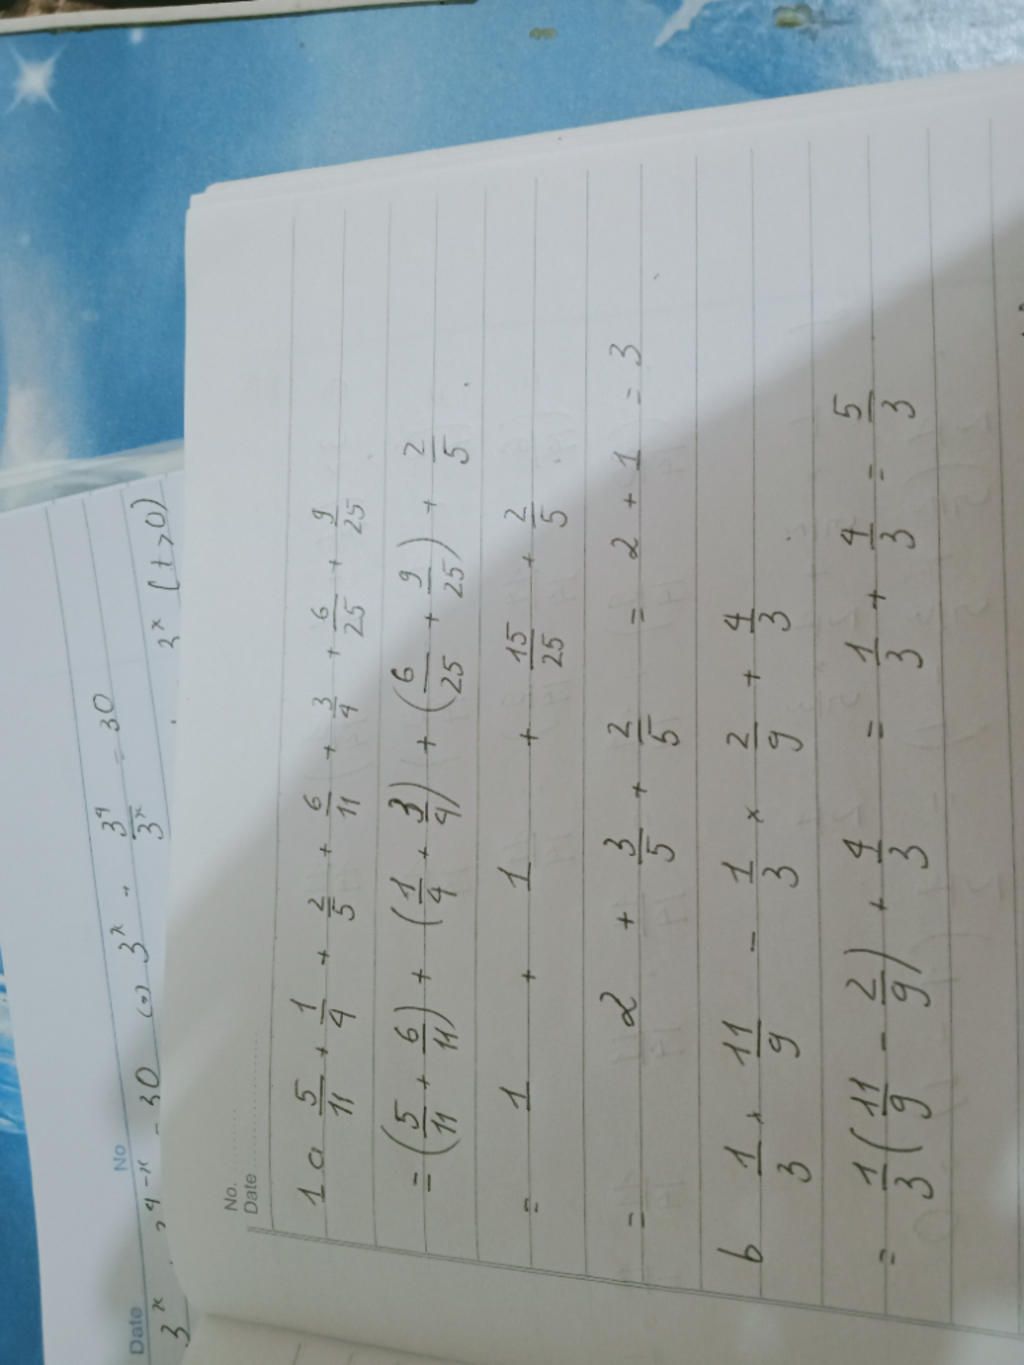 Date No
3^x + 3^{4-x} = 30 (=) 3^x + \frac{3^4}{3^x} = 30
3^x (t>0)
No.
Date
1 a \frac{5}{11} + \frac{1}{4} + \frac{2}{5} + \frac{6}{11} + \frac{3}{4} + \frac{6}{25} + \frac{9}{25}
= (\frac{5}{11} + \frac{6}{11}) + (\frac{1}{4} + \frac{3}{4}) + (\frac{6}{25} + \frac{9}{25}) + \frac{2}{5}
= 1 + 1 + \frac{15}{25} + \frac{2}{5}
= 2 + \frac{3}{5} + \frac{2}{5} = 2 + 1 = 3
b \frac{1}{3} × \frac{11}{9} - \frac{1}{3} × \frac{2}{9} + \frac{4}{3}
= \frac{1}{3} (\frac{11}{9} - \frac{2}{9}) + \frac{4}{3} = \frac{1}{3} + \frac{4}{3} = \frac{5}{3}